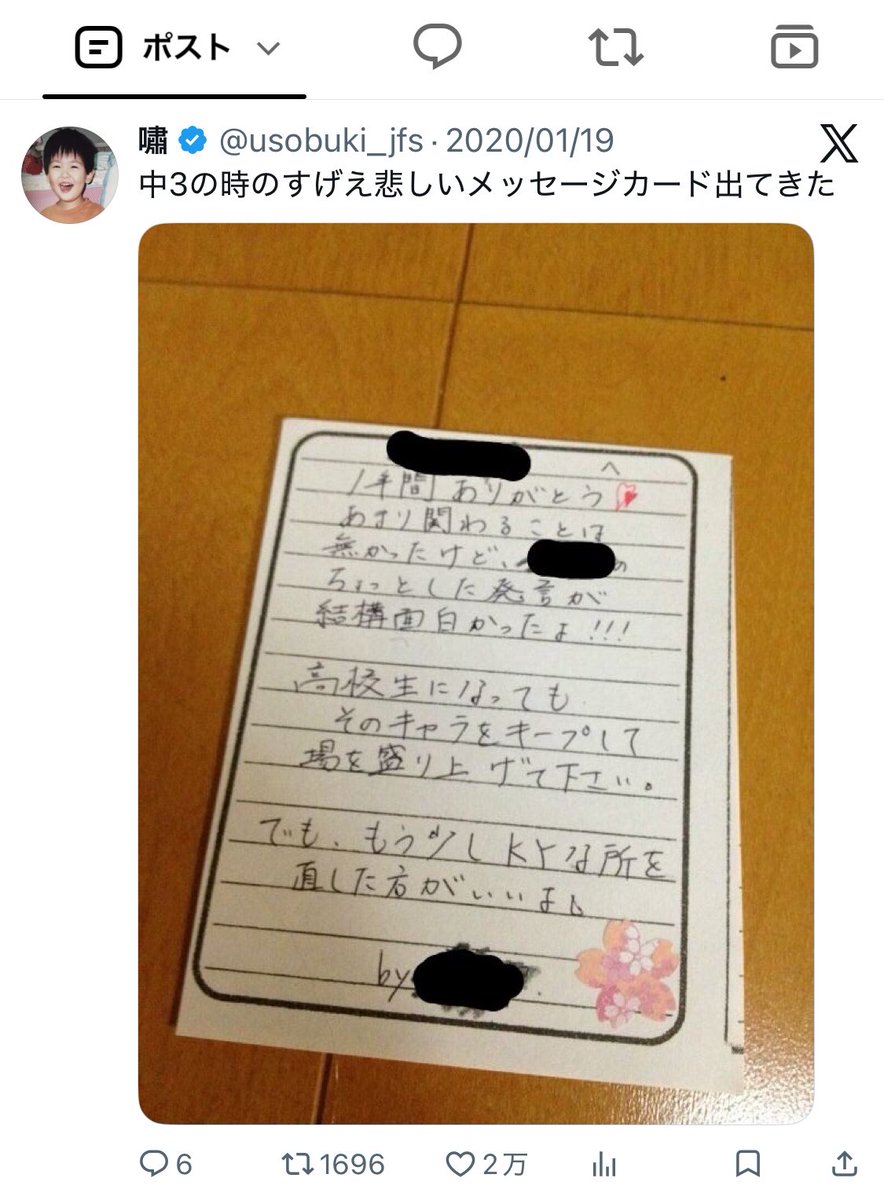 ポスト
嘯 @usobuki_jfs · 2020/01/19
X
中3の時のすげえ悲しいメッセージカード出てきた
へ
1年間ありがとう
あまり関わることは
無かったけど、の
ちょっとした発言が
結構面白かったよ!!!
高校生になっても
そのキャラをキープして
場を盛り上げて下さい。
でも、もう少しKYな所を
直した方がいいよ。
by
6
1696
2万